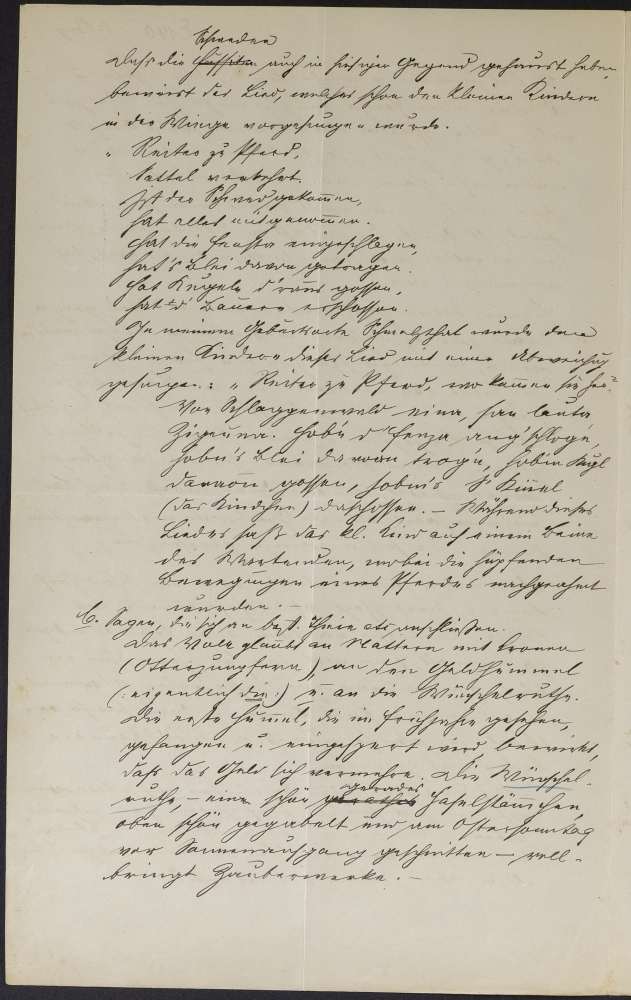 Schweden
Dass die Hussiten auch in hiesiger Gegend gehaust haben
beweist das Lied, welches schon den kleinen Kindern
in der Wiege vorgesungen wurde.
„ Reiter zu Pferd,
Sattel verkehrt.
Ist der Schwed gekommen,
hat alles mitgenommen.
Hat die Fenster eingeschlagen,
hat's Blei davon getragen.
Hat Kugeln d'raus gossen,
hat d' Bauern erschossen.
In meinem Geburtsorte Schmelzthal wurde den
kleinen Kindern dieses Lied mit einer Abweichung
gesungen: „ Reiter zu Pferd, wo kommen sie her?
Von Schlaggenwald eina, san lauta
Zigeuna. Hob'n d' Fenza aug'schlog'n,
hobn's Blei davoan trog'n, hob'n Kugl
davaon gossen, hobn's s' Kinel
(das Kindchen) daschossen. – Während dieses
Liedes saß das kl. Kind auf einem Beine
des Wartenden, wobei die hüpfenden
Bewegungen eines Pferdes nachgeahmt
wurden. –
6. Sagen, die sich an best. Thiere etc. anschließen.
Das Volk glaubt an Nattern mit Kronen
(Otterjungfern), an den Geldhummel
(: eigentlich die :) u. an die Wünschelruthe.
Die erste Hummel, die im Frühjahre gesehen,
gefangen u. eingesperrt wird bewirkt,
daß das Geld sich vermehre. Die Wünschel-
gerades
ruthe, – eine schön Haselstämchen,
oben schön gegabelt und am Ostersonntag
vor Sonnenaufgang geschnitten – voll-
bringt Zauberwerke. –